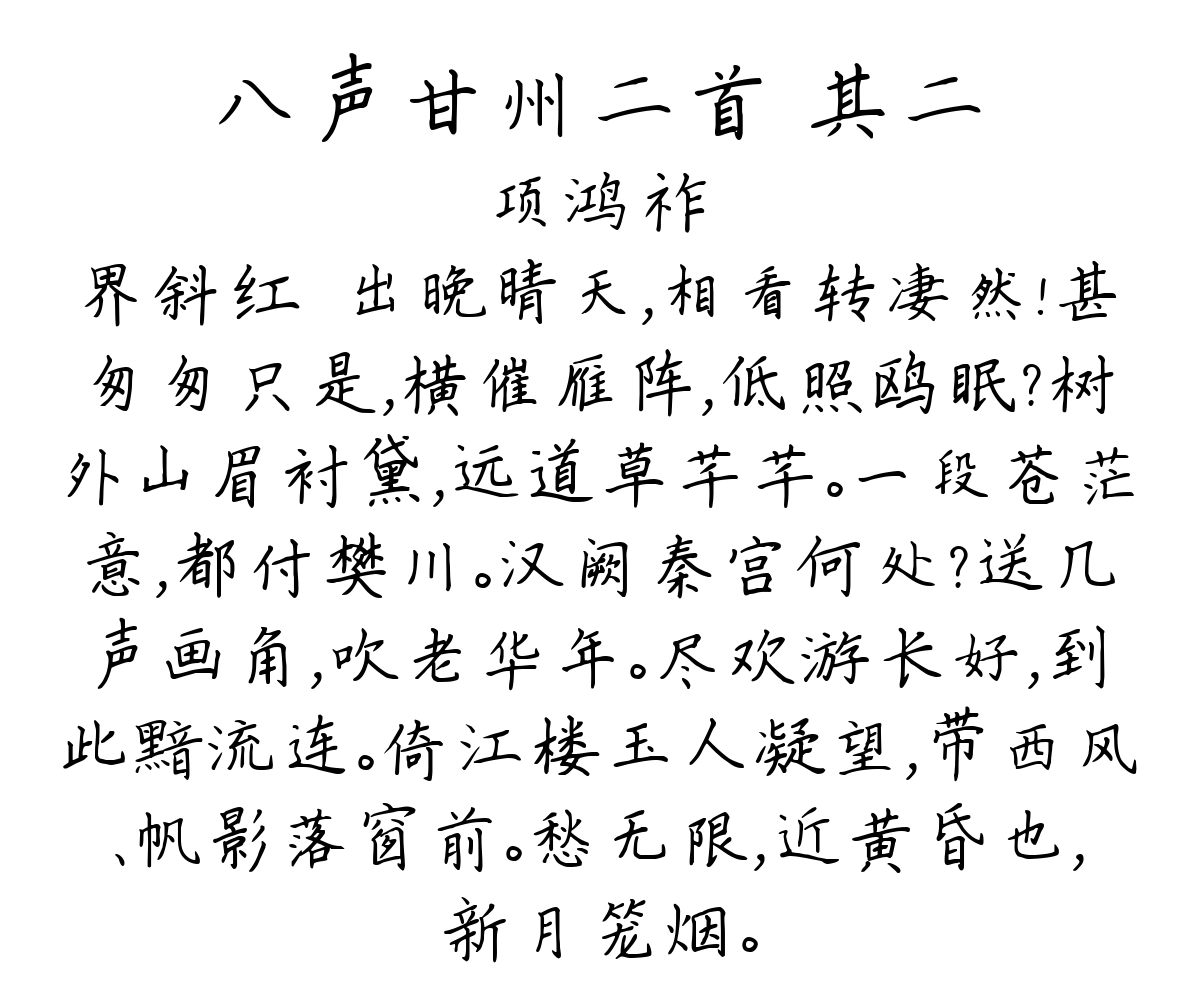 八声甘州二首 其二
项鸿祚
界斜红 出晚晴天,相看转凄然!甚
匆匆只是,横催雁阵,低照鸥眠?树
外山眉衬黛,远道草芊芊。一段苍茫
意,都付樊川。汉阙秦宫何处?送几
声画角,吹老华年。尽欢游长好,到
此黯流连。倚江楼玉人凝望,带西风
、帆影落窗前。愁无限,近黄昏也,
新月笼烟。